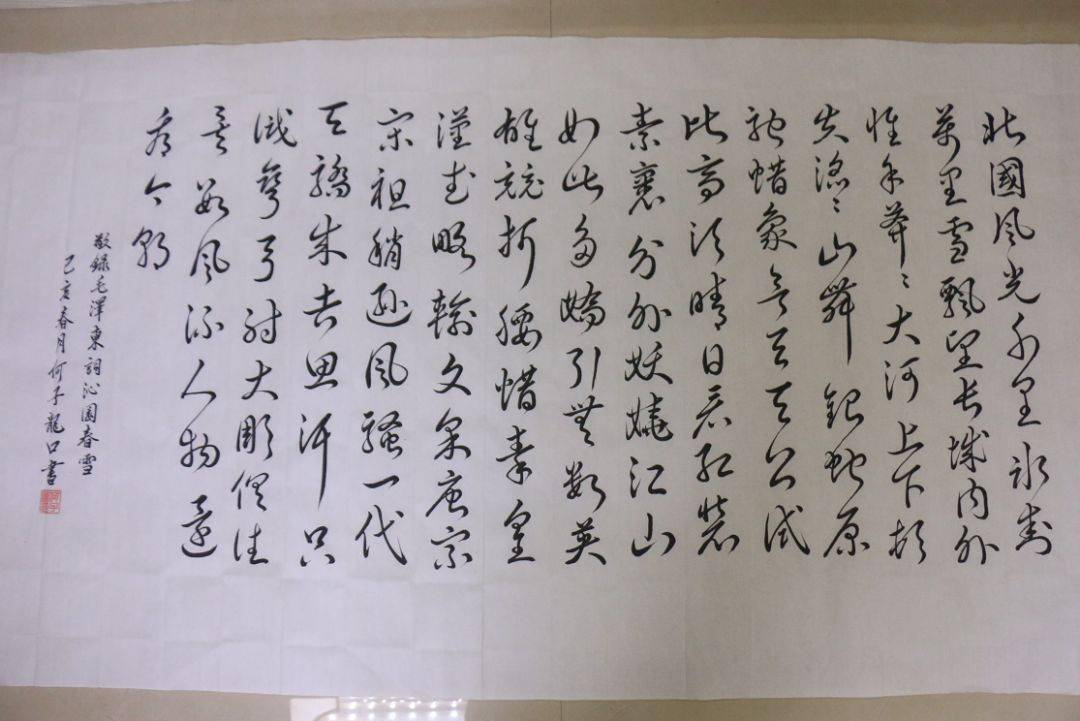 北國風光千里冰封
萬里雪飄望長城内外
惟余莽々大河上下頓
失滔々山舞銀蛇原
馳蜡象欲与天公試
比高須晴日看紅裝
素裹分外妖嬈江山
如此多嬌引無數英
雄競折腰惜秦皇
漢武略輸文采唐宗
宋祖稍遜風騷一代
天驕成吉思汗只
識彎弓射大彫俱往
矣數風流人物還
看今朝
敬錄毛澤東詞沁園春雪
己亥春月何子龍口書